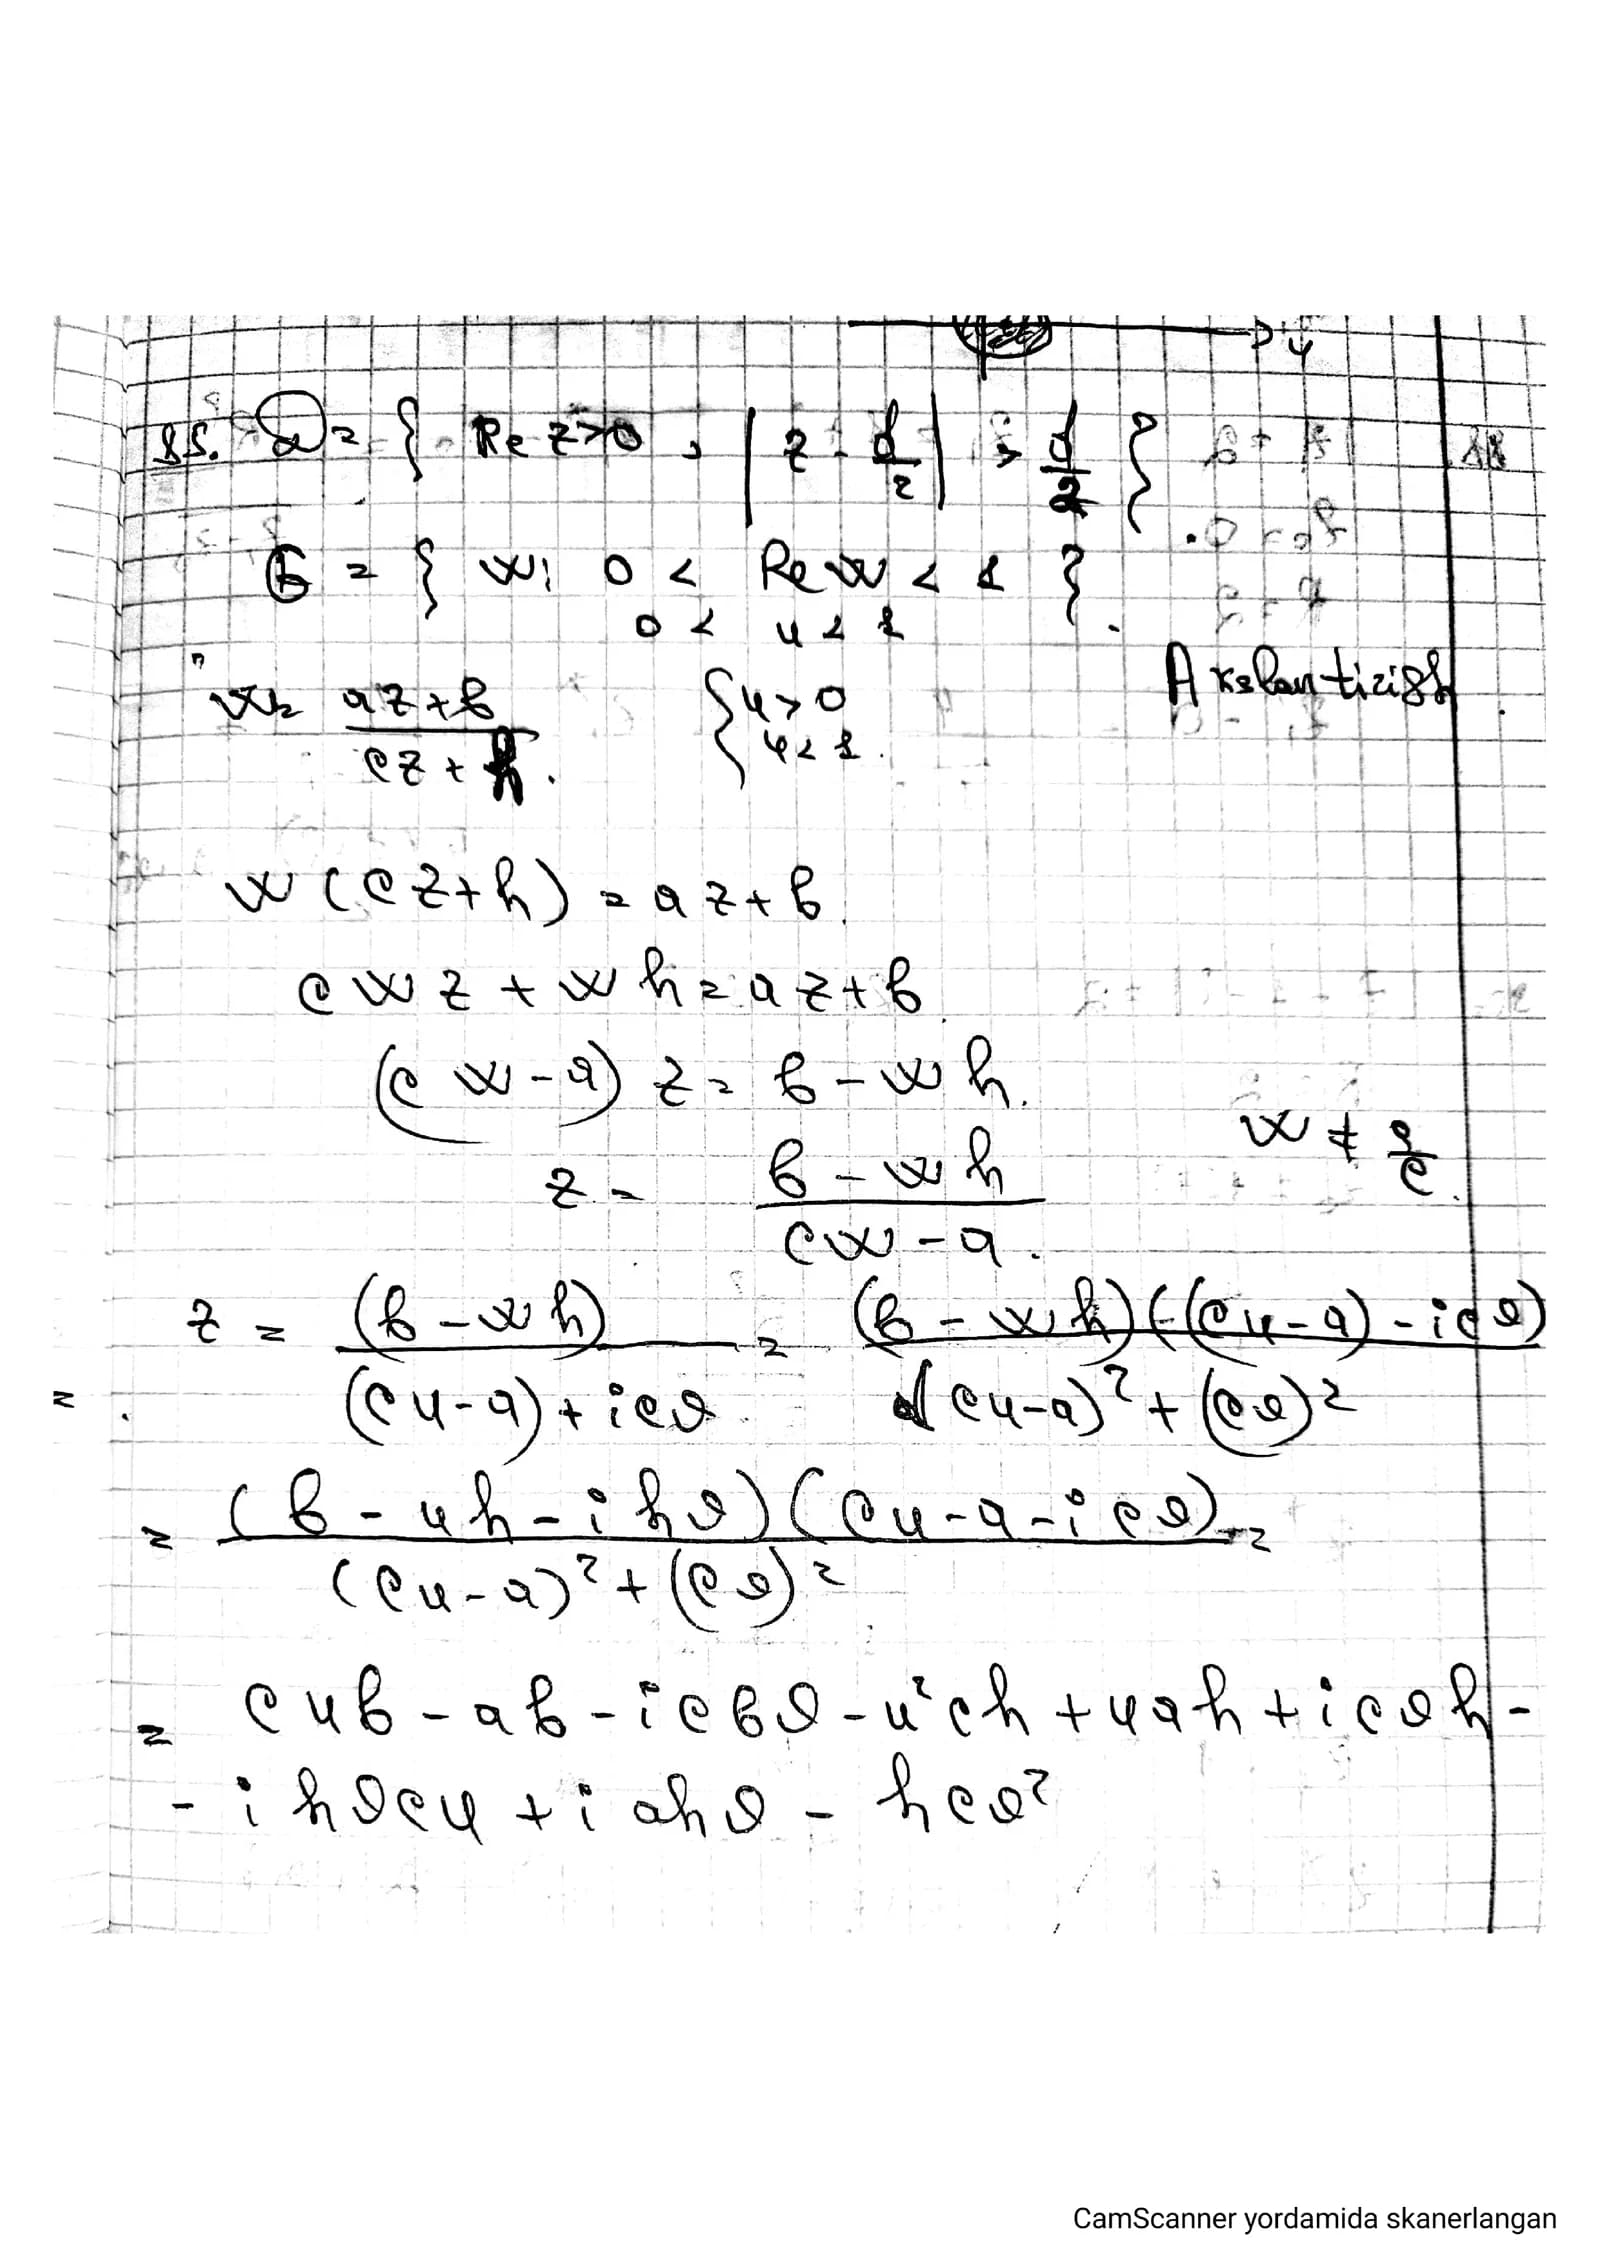 u
85. D = { Re z > 0 , | z - d/2 | > d/2 }
G = { w: 0 < Re w < 1 }.
0 < u < 1
Akslantirish.
w = (az + b)/(cz + h).   { u > 0
u < 1.
w (cz + h) = az + b.
c w z + w h = a z + b.
(c w - a) z = b - w h.
z = (b - w h)/(c w - a).   w ≠ a/c.
z = (b - w h)/((cu - a) + icϑ) = (b - w h)((cu - a) - icϑ)/((cu - a)² + (cϑ)²)
= (b - uh - ihϑ)(cu - a - icϑ)/((cu - a)² + (cϑ)²) =
= cub - ab - icbϑ - u²ch + uah + icϑh -
- ihϑcu + iahϑ - hcϑ²
CamScanner yordamida skanerlangan